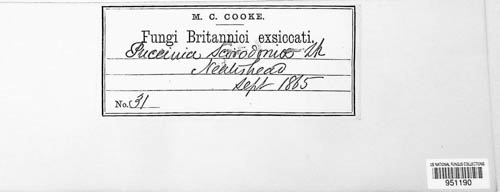 M. C. COOKE.
Fungi Britannici exsiccati.
Puccinia Scorodoniae Lk
Neatishead
Sept 1865
No. 31
US NATIONAL FUNGUS COLLECTIONS
951190